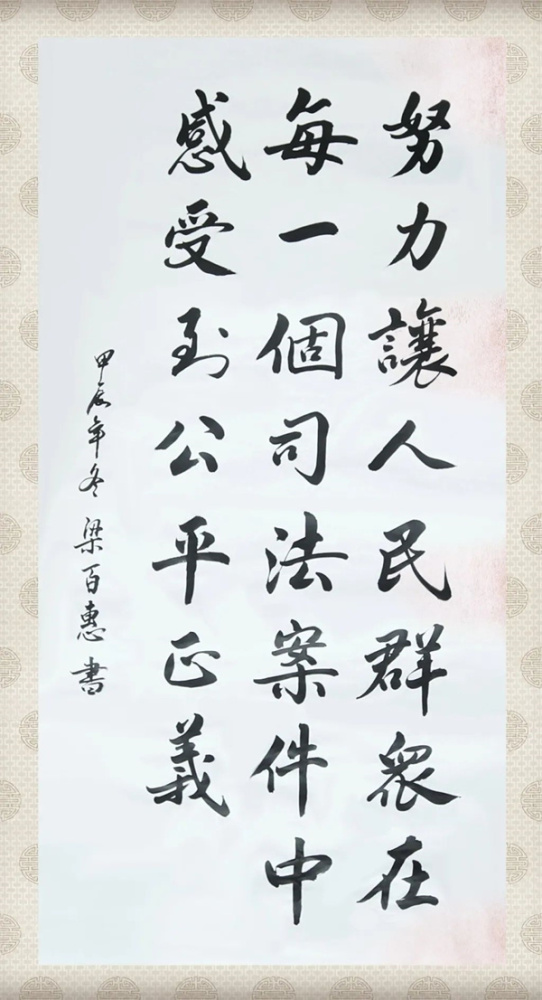 努力讓人民群眾在
每一個司法案件中
感受到公平正義
甲辰年冬 梁百惠 書